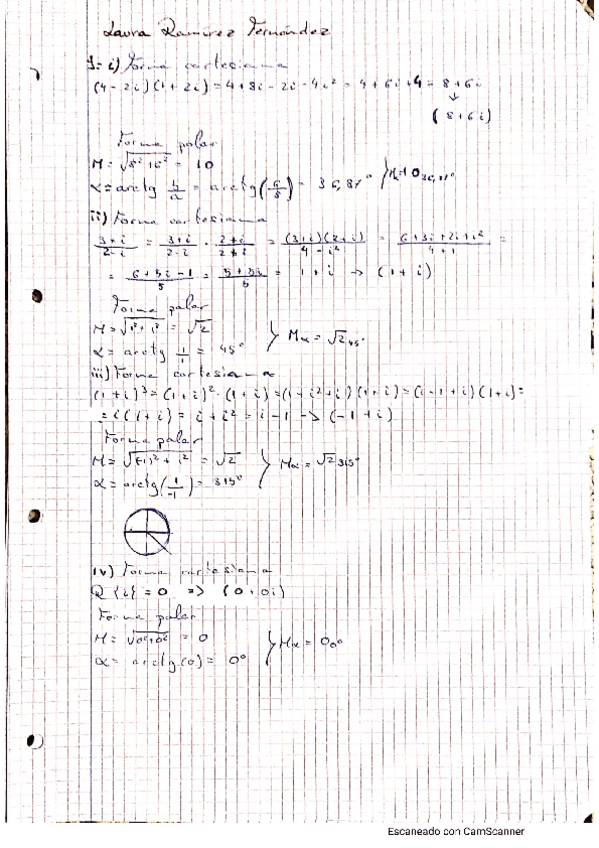 Laura Ramírez Fernández
1- i) Forma cartesiana
(4-2i)(1+2i)=4+8i-2i-4i²= 4+6i+4= 8+6i
↓
(8+6i)
Forma polar
M=√8²+6² = 10
α=arctg b/a = arctg(6/8)= 36,87° }Mα=10 36,87°
ii) Forma cartesiana
3+i/2-i = 3+i/2-i · 2+i/2+i = (3+i)(2+i)/4-i² = 6+3i+2i+i²/4+1 =
= 6+5i-1/5 = 5+5i/5 = 1+i → (1+i)
Forma polar
M=√1²+1² = √2
α= arctg 1/1 = 45° } Mα = √2 45°
iii) Forma cartesiana
(1+i)³=(1+i)²·(1+i)=(1+i²+i)(1+i)=(1-1+i)(1+i)=
= i(1+i)= i+i²= i-1 -> (-1+i)
Forma polar
M=√(-1)²+i² = √2
α=arctg(1/-1)= 315° } Mα= √2 315°
iv) Forma cartesiana
{i}=0 => (0+0i)
Forma polar
M= √0²+0² = 0
α= arctg(0)= 0° } Mα= 0 0°
Escaneado con CamScanner